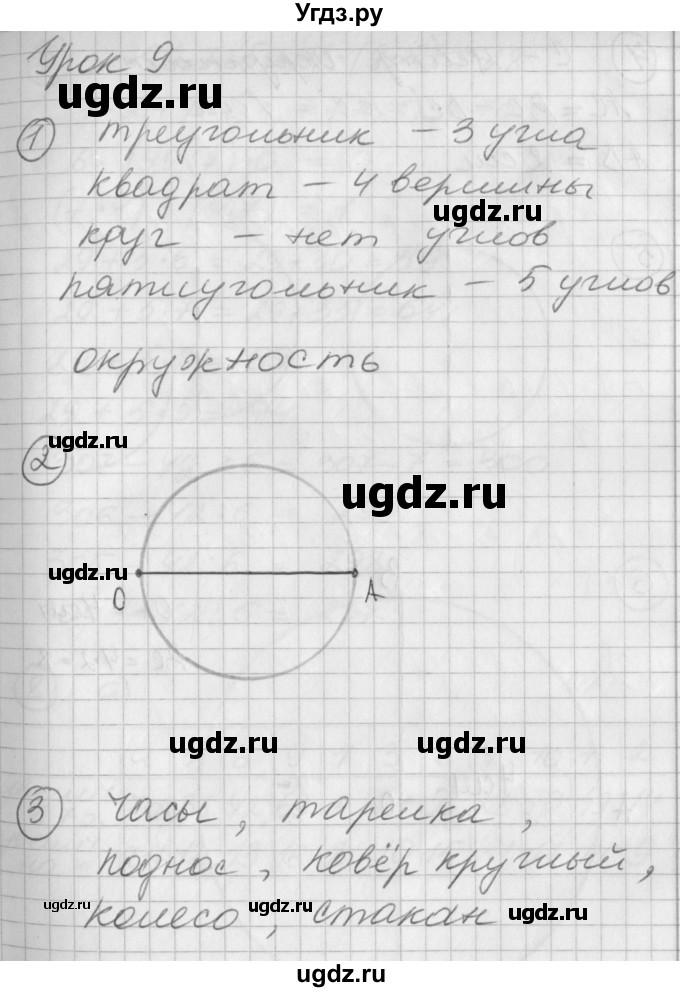 Угдз.ру
Урок 9
ugdz.ru
1 треугольник – 3 угла
квадрат – 4 вершины
ugdz.ru
круг – нет углов
пятиугольник – 5 углов
окружность
ugdz.ru
2
ugdz.ru
ugdz.ru
О А
ugdz.ru ugdz.ru
3 часы, тарелка,
поднос, ковёр круглый,
ugdz.ru ugdz.ru ugdz.ru
колесо, стакан
ugdz.ru